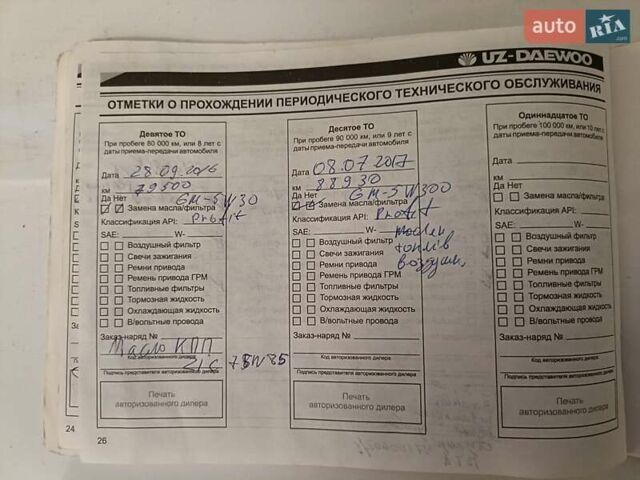 auto RIA .com
UZ-DAEWOO
ОТМЕТКИ О ПРОХОЖДЕНИИ ПЕРИОДИЧЕСКОГО ТЕХНИЧЕСКОГО ОБСЛУЖИВАНИЯ
Девятое ТО
При пробеге 80 000 км, или 8 лет с
даты приема-передачи автомобиля
Дата 28.09.2016
км 79500
Да Нет GM-5W30
Замена масла/фильтра
Классификация API: Profit
SAE: W-
Воздушный фильтр
Свечи зажигания
Ремни привода
Ремень привода ГРМ
Топливные фильтры
Тормозная жидкость
Охлаждающая жидкость
В/вольтные провода
Заказ-наряд №
Масло КПП
Код авторизованного дилера
ZIC 75W85
Подпись представителя авторизованного дилера
Печать
авторизованного дилера
Десятое ТО
При пробеге 90 000 км, или 9 лет с
даты приема-передачи автомобиля
Дата 08.07.2017
км 88930
Да Нет GM-5W300
Замена масла/фильтра
Классификация API: Profit
SAE: W- маслен
Воздушный фильтр топлив
Свечи зажигания воздушн,
Ремни привода
Ремень привода ГРМ
Топливные фильтры
Тормозная жидкость
Охлаждающая жидкость
В/вольтные провода
Заказ-наряд №
Код авторизованного дилера
Подпись представителя авторизованного дилера
Печать
авторизованного дилера
Одиннадцатое ТО
При пробеге 100 000 км, или 10 лет с
даты приема-передачи автомобиля
Дата
км
Да Нет
Замена масла/фильтра
Классификация API:
SAE: W-
Воздушный фильтр
Свечи зажигания
Ремни привода
Ремень привода ГРМ
Топливные фильтры
Тормозная жидкость
Охлаждающая жидкость
В/вольтные провода
Заказ-наряд №
Код авторизованного дилера
Подпись представителя авторизованного дилера
Печать
авторизованного дилера
24
26